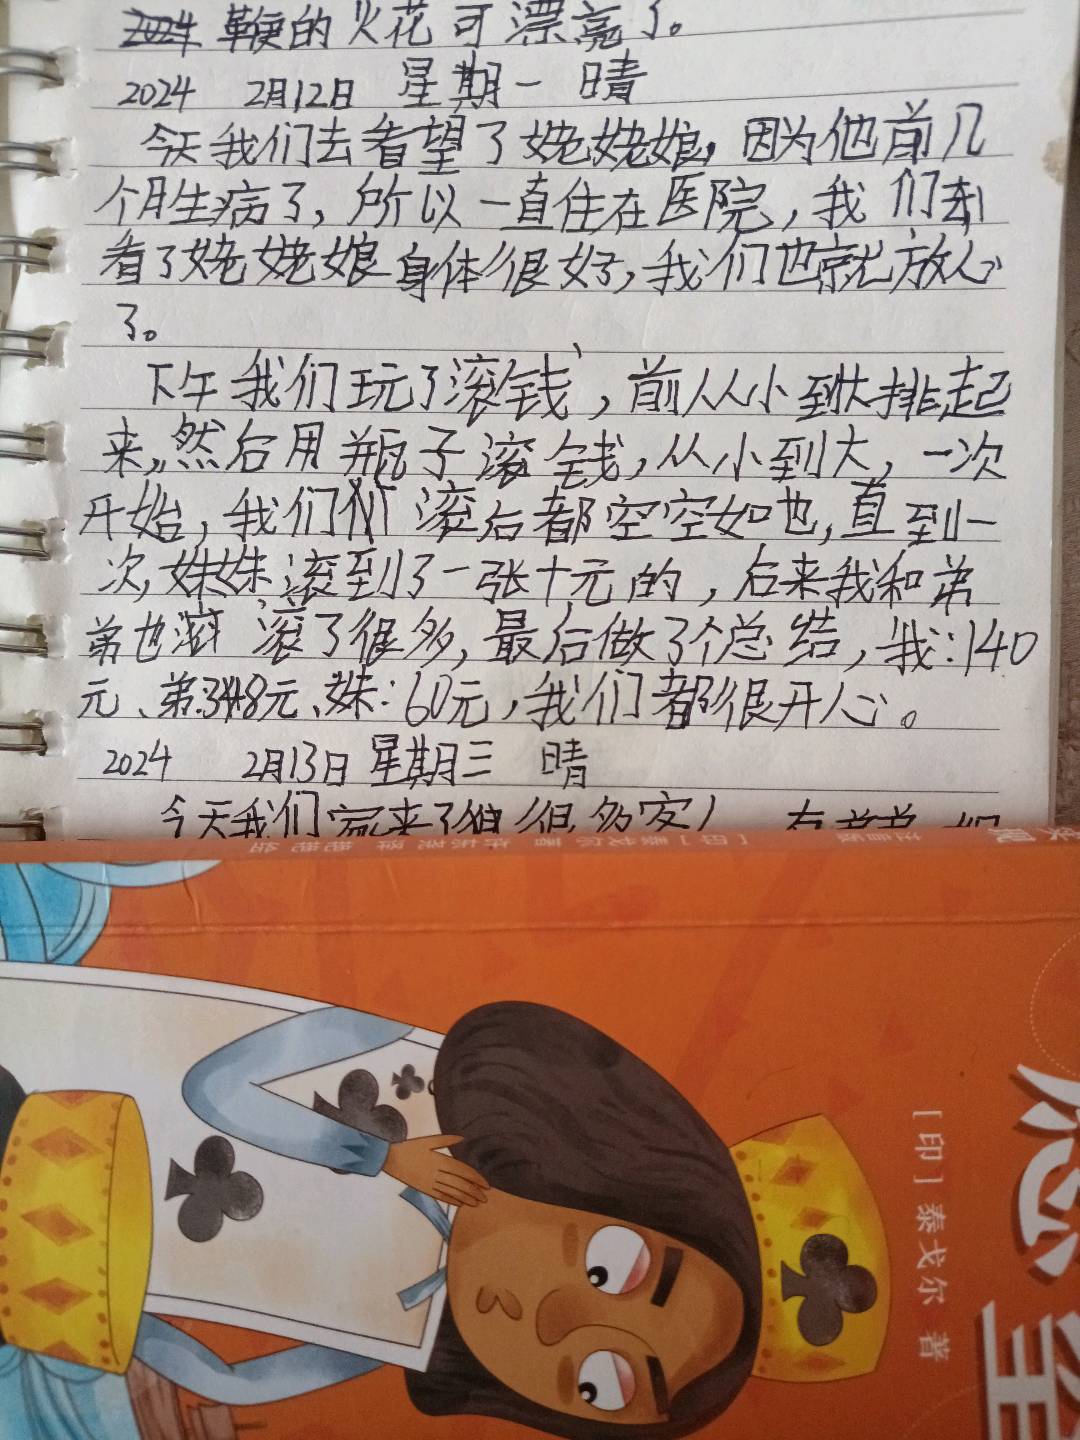 鞭的火花可漂亮了。
2024 2月12日 星期一 晴
今天我们去看望了姥姥娘，因为他前几
个月生病了，所以一直住在医院，我们去
看了姥姥娘身体很好，我们也就放心
了。
下午我们玩了滚钱，前从小到大排起
来，然后用瓶子滚钱，从小到大，一次
开始，我们们滚后都空空如也，直到一
次，妹妹滚到了一张十元的，后来我和弟
弟也滚滚了很多，最后做了个总结，我：140
元、弟:348元、妹：60元，我们都很开心。
2024 2月13日 星期三 晴
今天我们家来了很多客人
[印]泰戈尔 著